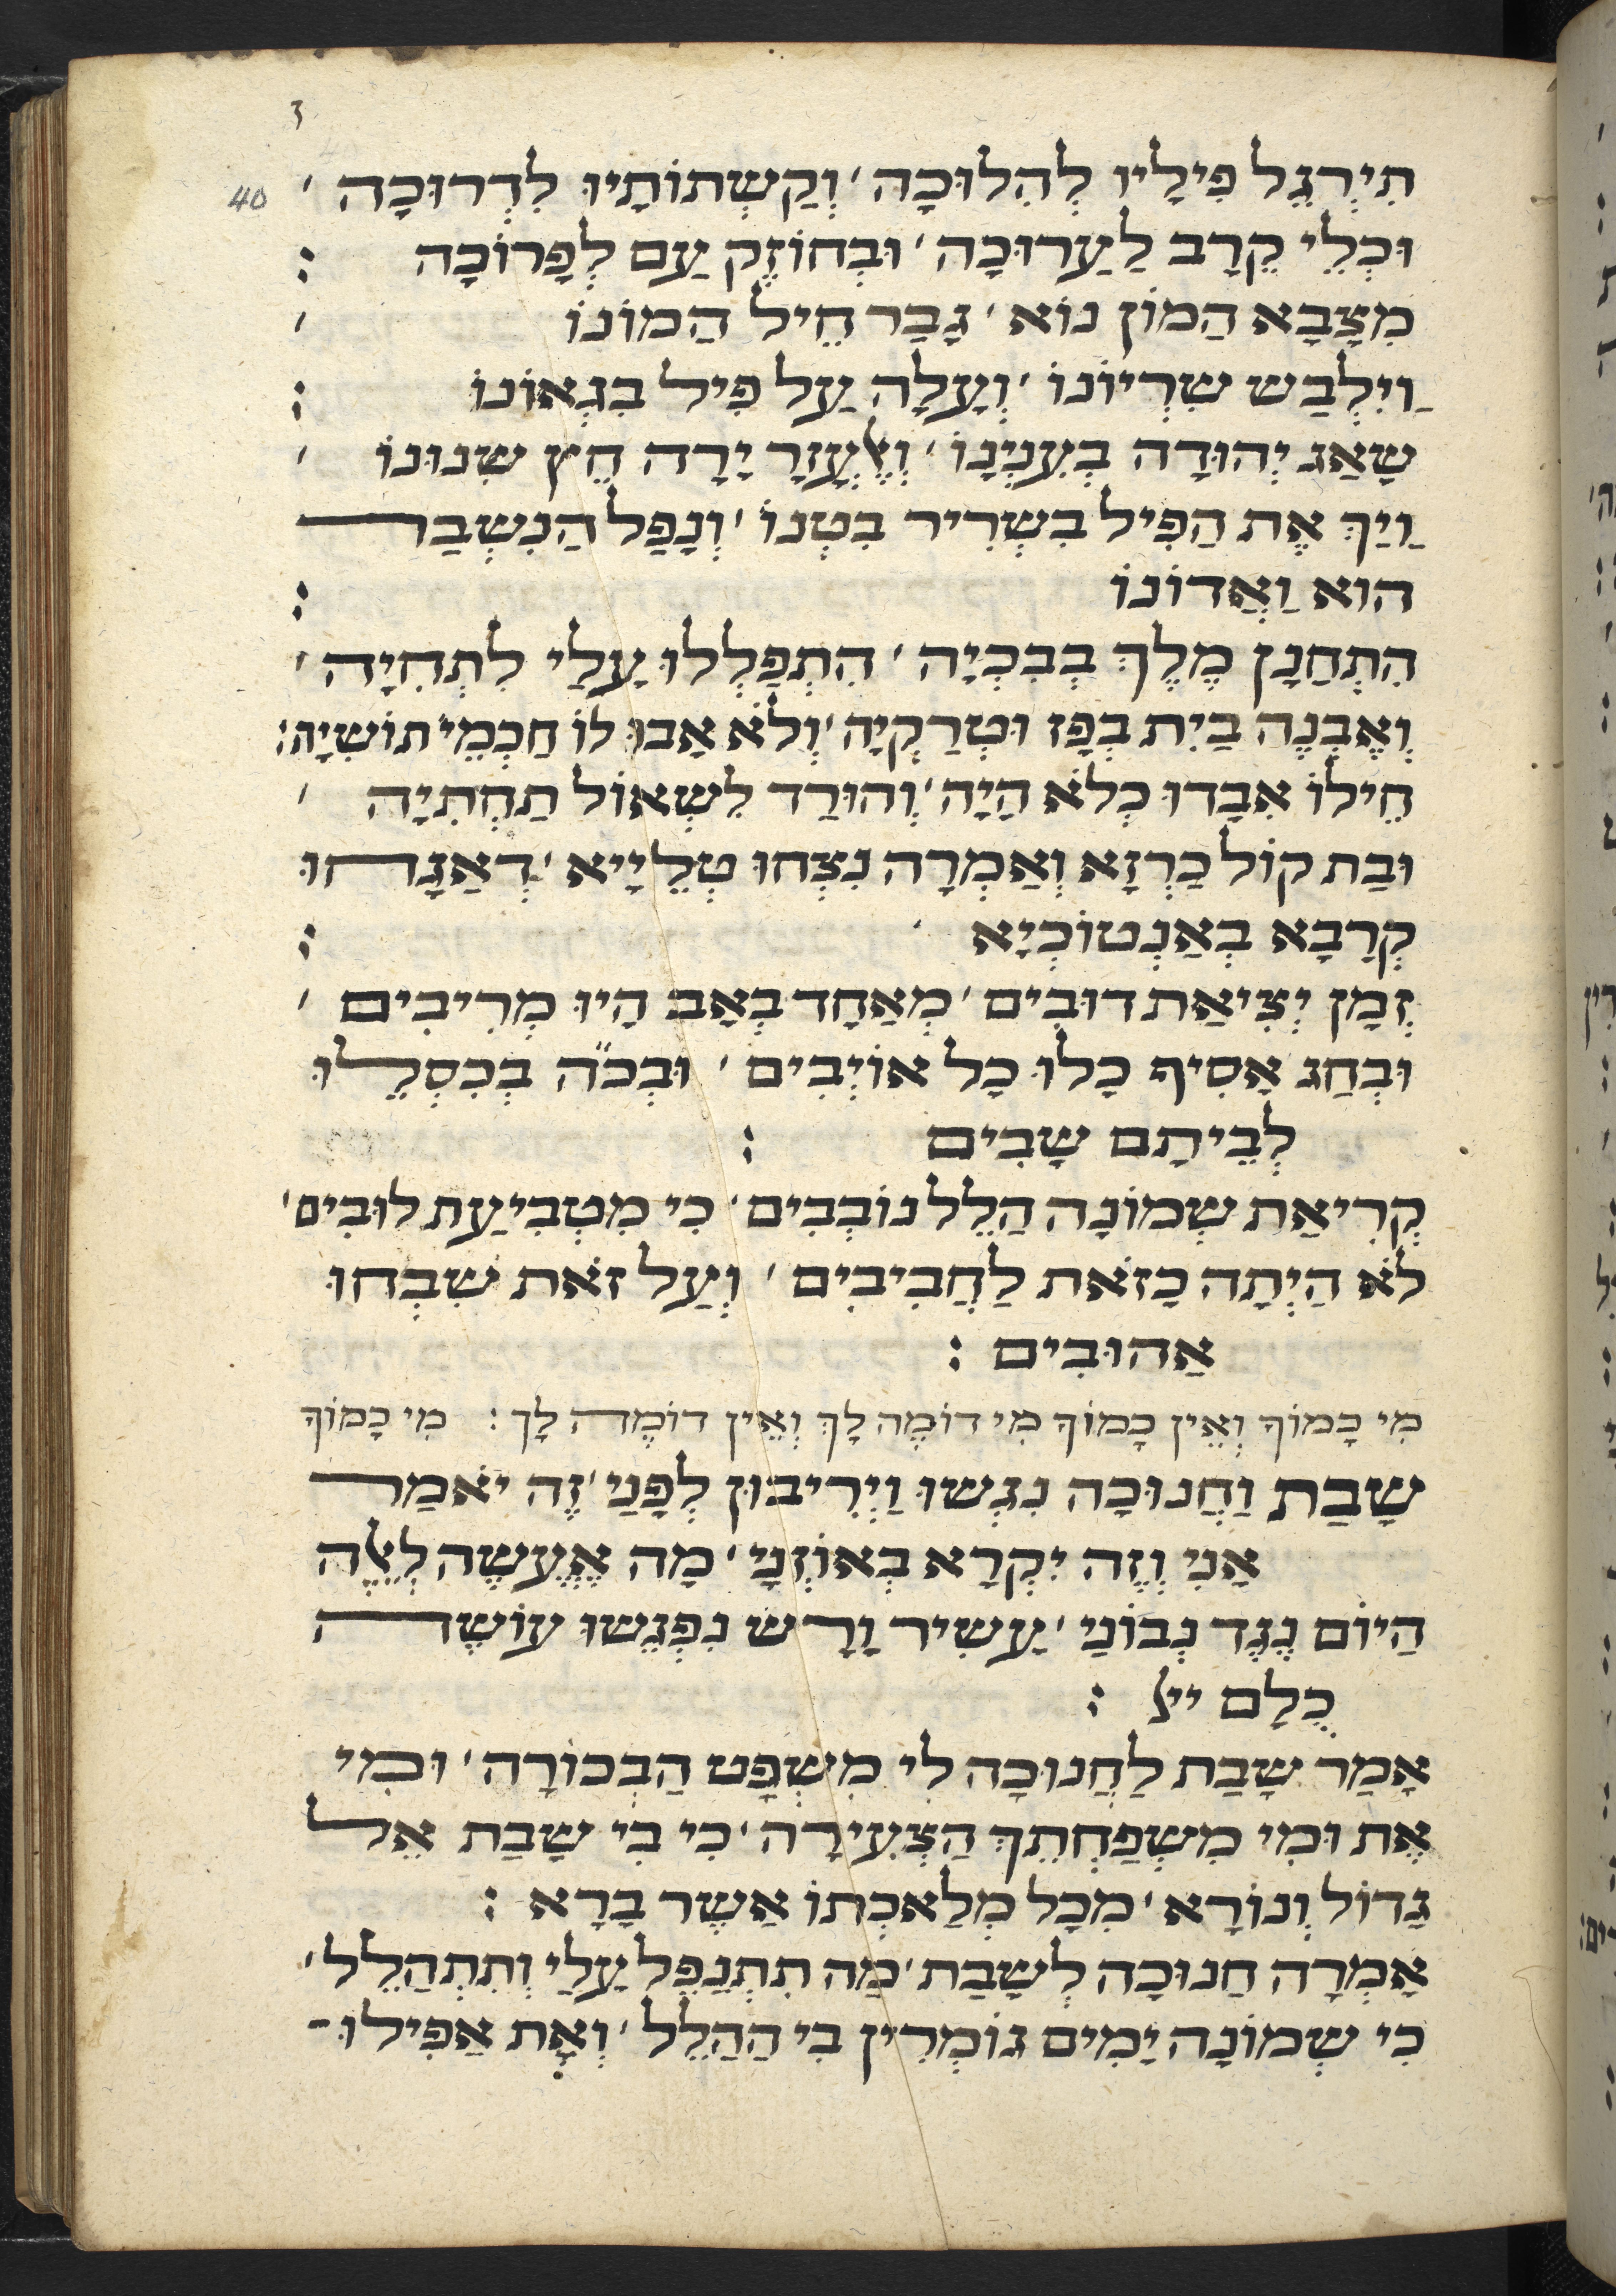 3
40
תִירְגֵל פִילָיו לְהִלוּכָה׳ וְקַשְתוֹתָיו לִדְרוּכָה׳
וּכְלֵי קְרָב לַעַרוּכָה׳ וּבְחוֹזֶק עַם לְפָרוֹכָה :
מִצָבָא הַמוֹן נוֹא׳ גָבַר חֵיל הַמוֹנוֹ׳
וַיִלְבַש שִרְיוֹנוֹ׳ וְעָלָה עַל פִיל בִגְאוֹנוֹ :
שָאַג יְהוּדָה בְעִנְיָנוֹ׳ וְאֶלְעָזָר יָרָה חֵץ שִנוּנוֹ׳
וַיַךְ אֶת הַפִיל בִשְרִיר בִטְנוֹ׳ וְנָפַל הַנִשְבַר
הוּא וַאֲדוֹנוֹ :
הִתְחַנָן מֶלֶךְ בְבִכְיָה׳ הִתְפַלְלוּ עָלַי לִתְחִיָה׳
וְאֶבְנֶה בַיִת בְפָז וּטְרַקְיָה׳ וְלֹא אָבוּ לוֹ חַכְמֵי תוּשִיָה:
חֵילוֹ אִבָדוּ כְלֹא הָיָה׳ וְהוּרַד לִשְאוֹל תַחְתִיָה׳
וּבַת קוֹל כַרְזָא וְאַמְרָה נִצְחוּ טְלֵייָא׳ דְאַגָחוּ
קְרָבָא בְאַנְטוֹכְיָא׳ :
זְמָן יְצִיאַת דוּבִים׳ מְאַחָד בְאָב הָיוּ מְרִיבִים׳
וּבְחַג אָסִיף כָלוּ כָל אוֹיְבִים׳ וּבְכ״ה בְכִסְלֵיו
לְבֵיתָם שָבִים :
קְרִיאַת שְמוֹנָה הַלֵל נוֹבְבִים׳ כִי מִטְבִיעַת לוּבִים׳
לֹא הַיְתָה כָזֹאת לַחֲבִיבִים׳ וְעַל זֹאת שִבְחוּ
אַהוּבִים :
מִי כָמוֹךָ וְאֵין כָמוֹךָ מִי דוֹמֶה לָךְ וְאֵין דוֹמֶה לָךְ : מִי כָמוֹךָ
שַבָת וַחֲנוּכָה נִגְשוּ וַיְרִיבוּן לְפָנַי׳ זֶה יֹאמַר
אֲנִי וְזֶה יִקְרָא בְאוֹזְנָי׳ מָה אֶעֱשֶה לָאֵלֶה
הַיוֹם נֶגֶד נְבוֹנַי׳ עָשִיר וָרָש נִפְגְשוּ עוֹשֶה
כֻלָם ייי :
אָמַר שַבָת לַחֲנוּכָה לִי מִשְפָט הַבְכוֹרָה׳ וּמִי
אַת וּמִי מִשְפַחְתֵךְ הַצְעִירָה׳ כִי בִי שָבַת אֵל
גָדוֹל וְנוֹרָא׳ מִכָל מְלַאכְתוֹ אֲשֶר בָרָא :
אָמְרָה חַנוּכָה לְשַבָת׳ מַה תִתְנַפֵל עָלַי וְתִתְהַלֵל׳
כִי שְמוֹנָה יָמִים גוֹמְרִין בִי הַהַלֵל׳ וְאַת אַפִילוּ-